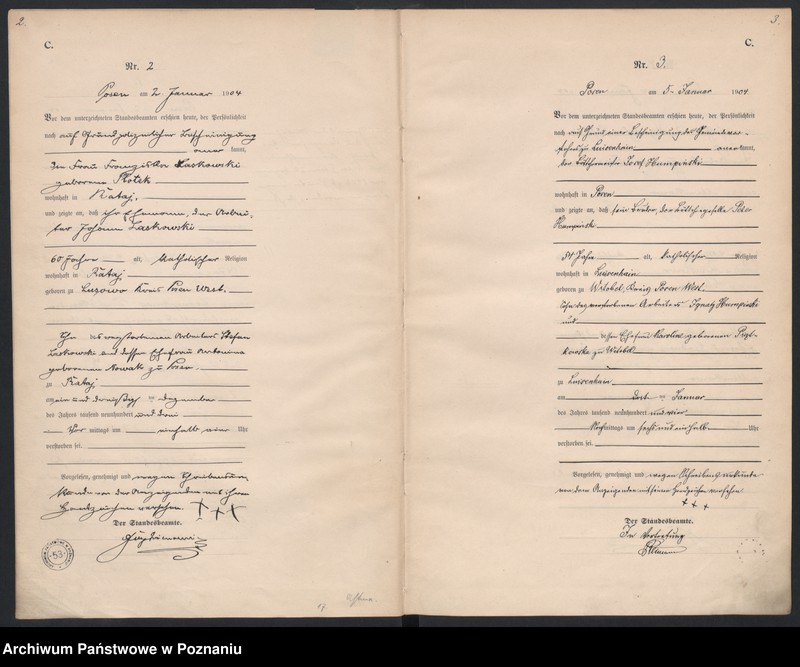 2.
C.
Nr. 2
Posen am 2 Januar 1904
Vor dem unterzeichneten Standesbeamten erschien heute, der Persönlichkeit
nach auf Grund polizeilicher Bescheinigung
kannt,
die Frau Franziska Laskowski
geborene
wohnhaft in Rataj,
und zeigte an, daß ihr Ehemann, der Arbei-
ter Johann Laskowski
60 Jahre alt, katholischer Religion
wohnhaft in Rataj
geboren zu Lussowo Kreis Posen West.
Sohn des verstorbenen Arbeiters Stefan
Laskowski und dessen Ehefrau Antonina
geborenen Nowak zu Posen.
zu Rataj
am ein und dreißigsten Dezember
des Jahres tausend neunhundert und drei
Vor mittags um einhalb vier Uhr
verstorben sei.
Vorgelesen, genehmigt und wegen Schreibensun-
kunde von der Anzeigenden mit ihrem
Handzeichen versehen. +++
Der Standesbeamte.
53
17.
3.
C.
Nr. 3.
Posen am 5. Januar 1904
Vor dem unterzeichneten Standesbeamten erschien heute, der Persönlichkeit
nach auf Grund einer Bescheinigung des Gemeindevor-
stehers zu Luisenhain anerkannt,
der Josef
wohnhaft in Posen
und zeigte an, daß sein Bruder, der Peter
54 Jahre alt, katholischer Religion
wohnhaft in Luisenhain
geboren zu Wiobel, Kreis Posen West.
Sohn des verstorbenen Arbeiters Ignatz
und
dessen Ehefrau Karolina geborenen
zu
zu Luisenhain
am Januar
des Jahres tausend neunhundert und vier
Nachmittags um sechs und einhalb Uhr
verstorben sei.
Vorgelesen, genehmigt und wegen Schreibensunkunde
von dem Anzeigenden mit seinem Handzeichen versehen
+++
Der Standesbeamte.
In Vertretung
Archiwum Państwowe w Poznaniu